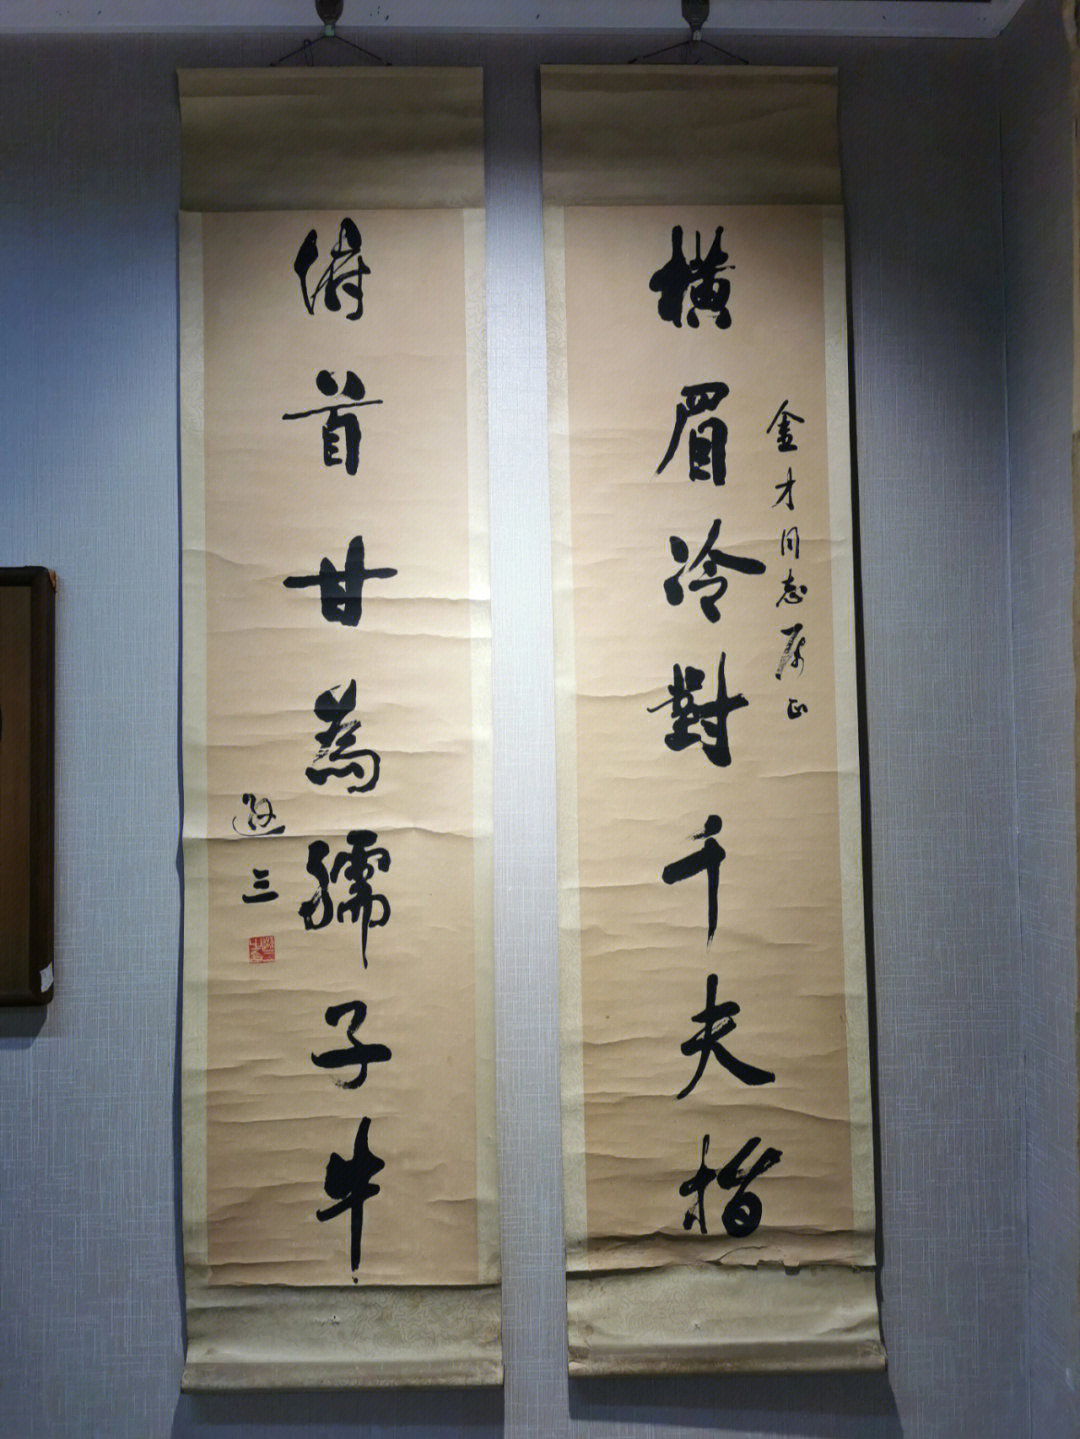 横眉冷對千夫指
金才同志属正
俯首甘為孺子牛
三